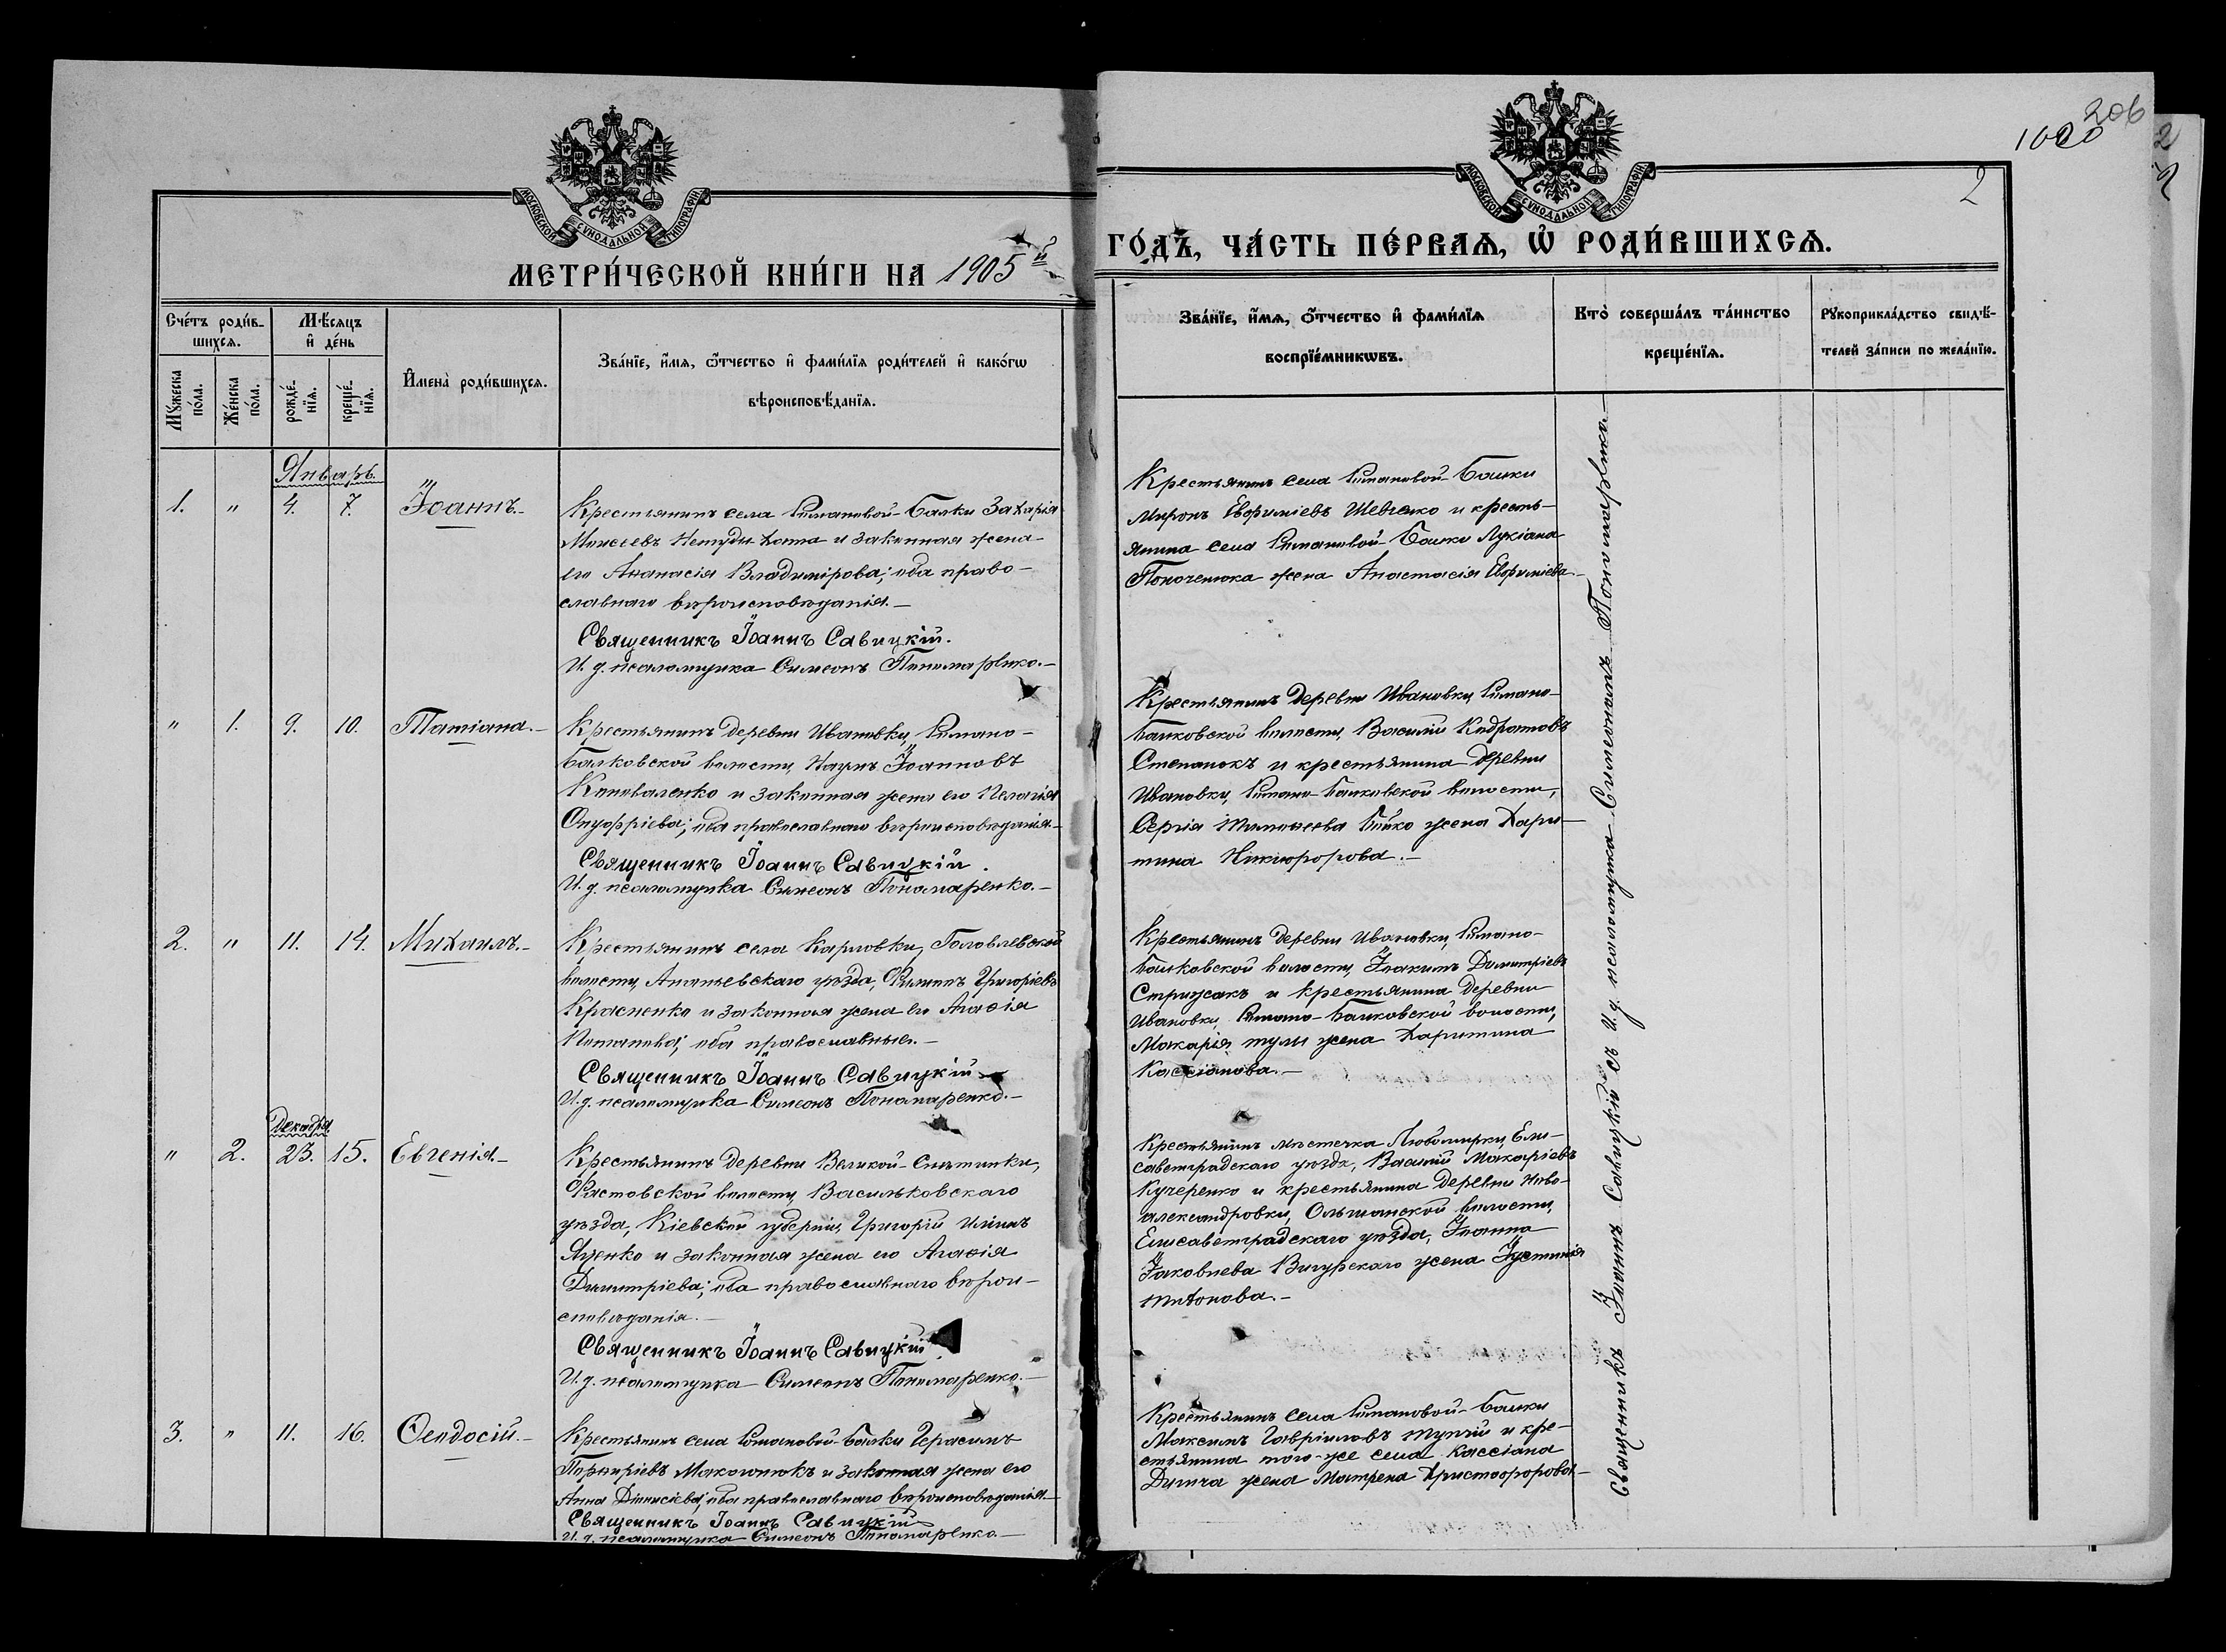 206
1000
2
2
МОСКОВСКОЙ СѴНОДАЛЬНОЙ ТИПОГРАФІИ
МОСКОВСКОЙ СѴНОДАЛЬНОЙ ТИПОГРАФІИ
МЕТРИ́ЧЕСКОЙ КНИ́ГИ НА 1905й
ГО́ДЪ, ЧА́СТЬ ПЕ́РВАѦ, Ѡ҆ РОДИ́ВШИХСѦ.
Сче́тъ роди́в-
шихсѧ.
Мѣ́сѧцъ
и҆ де́нь
Мꙋ́жеска
по́ла.
Же́нска
по́ла.
рожде́-
нїѧ.
креще́-
нїѧ.
И҆мена̀ роди́вшихсѧ.
Зва́нїе, и҆́мѧ, ѻ҆́тчество и҆ фами́лїѧ роди́телей и҆ како́гѡ
вѣроисповѣ́данїѧ.
Зва́нїе, и҆́мѧ, ѻ҆́тчество и҆ фами́лїѧ
воспрїе́мникѡвъ.
Кто̀ соверша́лъ та́инство
креще́нїѧ.
Рꙋкоприкла́дство свидѣ́-
телей за́писи по жела́нїю.
Январь.
1. " 4. 7. Іоаннъ.-
Крестьянинъ села Романовой-Балки Захарія
Моисеевъ Нетудыхата и законная жена
его Анастасія Владимірова; оба право-
славнаго вѣроисповѣданія.-
Священникъ Іоаннъ Савицкій.
И. д. псаломщика Симеонъ Пономаренко.-
Крестьянинъ села Романовой-Балки
Миронъ Евфиміевъ Шевченко и кресть-
янина села Романовой-Балки Лукіана
жена Анастасія Евфиміева.-
" 1. 9. 10. Татіана.-
Крестьянинъ деревни Ивановки, Романо-
Балковской волости, Наумъ Іоанновъ
Коноваленко и законная жена его Пелагія
Онуфріева; оба православнаго вѣроисповѣданія.-
Священникъ Іоаннъ Савицкій.
И. д. псаломщика Симеонъ Пономаренко.-
Крестьянинъ деревни Ивановки, Романо-
Балковской волости, Василій Кодратовъ
Степанокъ и крестьянина деревни
Ивановки, Романо-Балковской волости,
Сергія Тимофеева Бойко жена Хари-
тина Никифорова.-
2. " 11. 14. Михаилъ.-
Крестьянинъ села Карловки, Головлевской
волости, Ананьевскаго уѣзда, Филиппъ Григоріевъ
Красненко и законная жена его Агафія
Потапова; оба православные.-
Священникъ Іоаннъ Савицкій
И. д. псаломщика Симеонъ Пономаренко.-
Крестьянинъ деревни Ивановки, Романо-
Балковской волости, Іоакимъ Димитріевъ
Стрижакъ и крестьянина деревни
Ивановки, Романо-Балковской волости,
Макарія жена Харитина
Кассіанова.-
Декабря.
" 2. 23. 15. Евгенія.-
Крестьянинъ деревни Великой-Снѣтинки,
Фастовской волости, Васильковскаго
уѣзда, Кіевской губерніи, Григорій Иліинъ
Яценко и законная жена его Агафія
Димитріева; оба православнаго вѣрои-
сповѣданія.-
Священникъ Іоаннъ Савицкій
И. д. псаломщика Симеонъ Пономаренко.-
Крестьянинъ мѣстечка Любомирки, Ели-
саветградскаго уѣзда, Василій Макаріевъ
Кучеренко и крестьянина деревни Ново-
александровки, Ольшанской волости,
Елисаветградскаго уѣзда, Іоанна
Іаковлева Вигурскаго жена Іустинія
Титонова.-
3. " 11. 16. Ѳеодосій.-
Крестьянинъ села Романовой-Балки Герасимъ
Порфиріевъ Макогонюкъ и законная жена его
Анна Діонисіева; оба православнаго вѣроисповѣданія.-
Священникъ Іоаннъ Савицкій
И. д. псаломщика Симеонъ Пономаренко.-
Крестьянинъ села Романовой-Балки
Максимъ Гавріиловъ и кре-
стьянина того-же села Кассіана
жена Матрена Христофорова-
Священникъ Іоаннъ Савицкій съ И. д. псаломщика Симеономъ Пономаренко.-